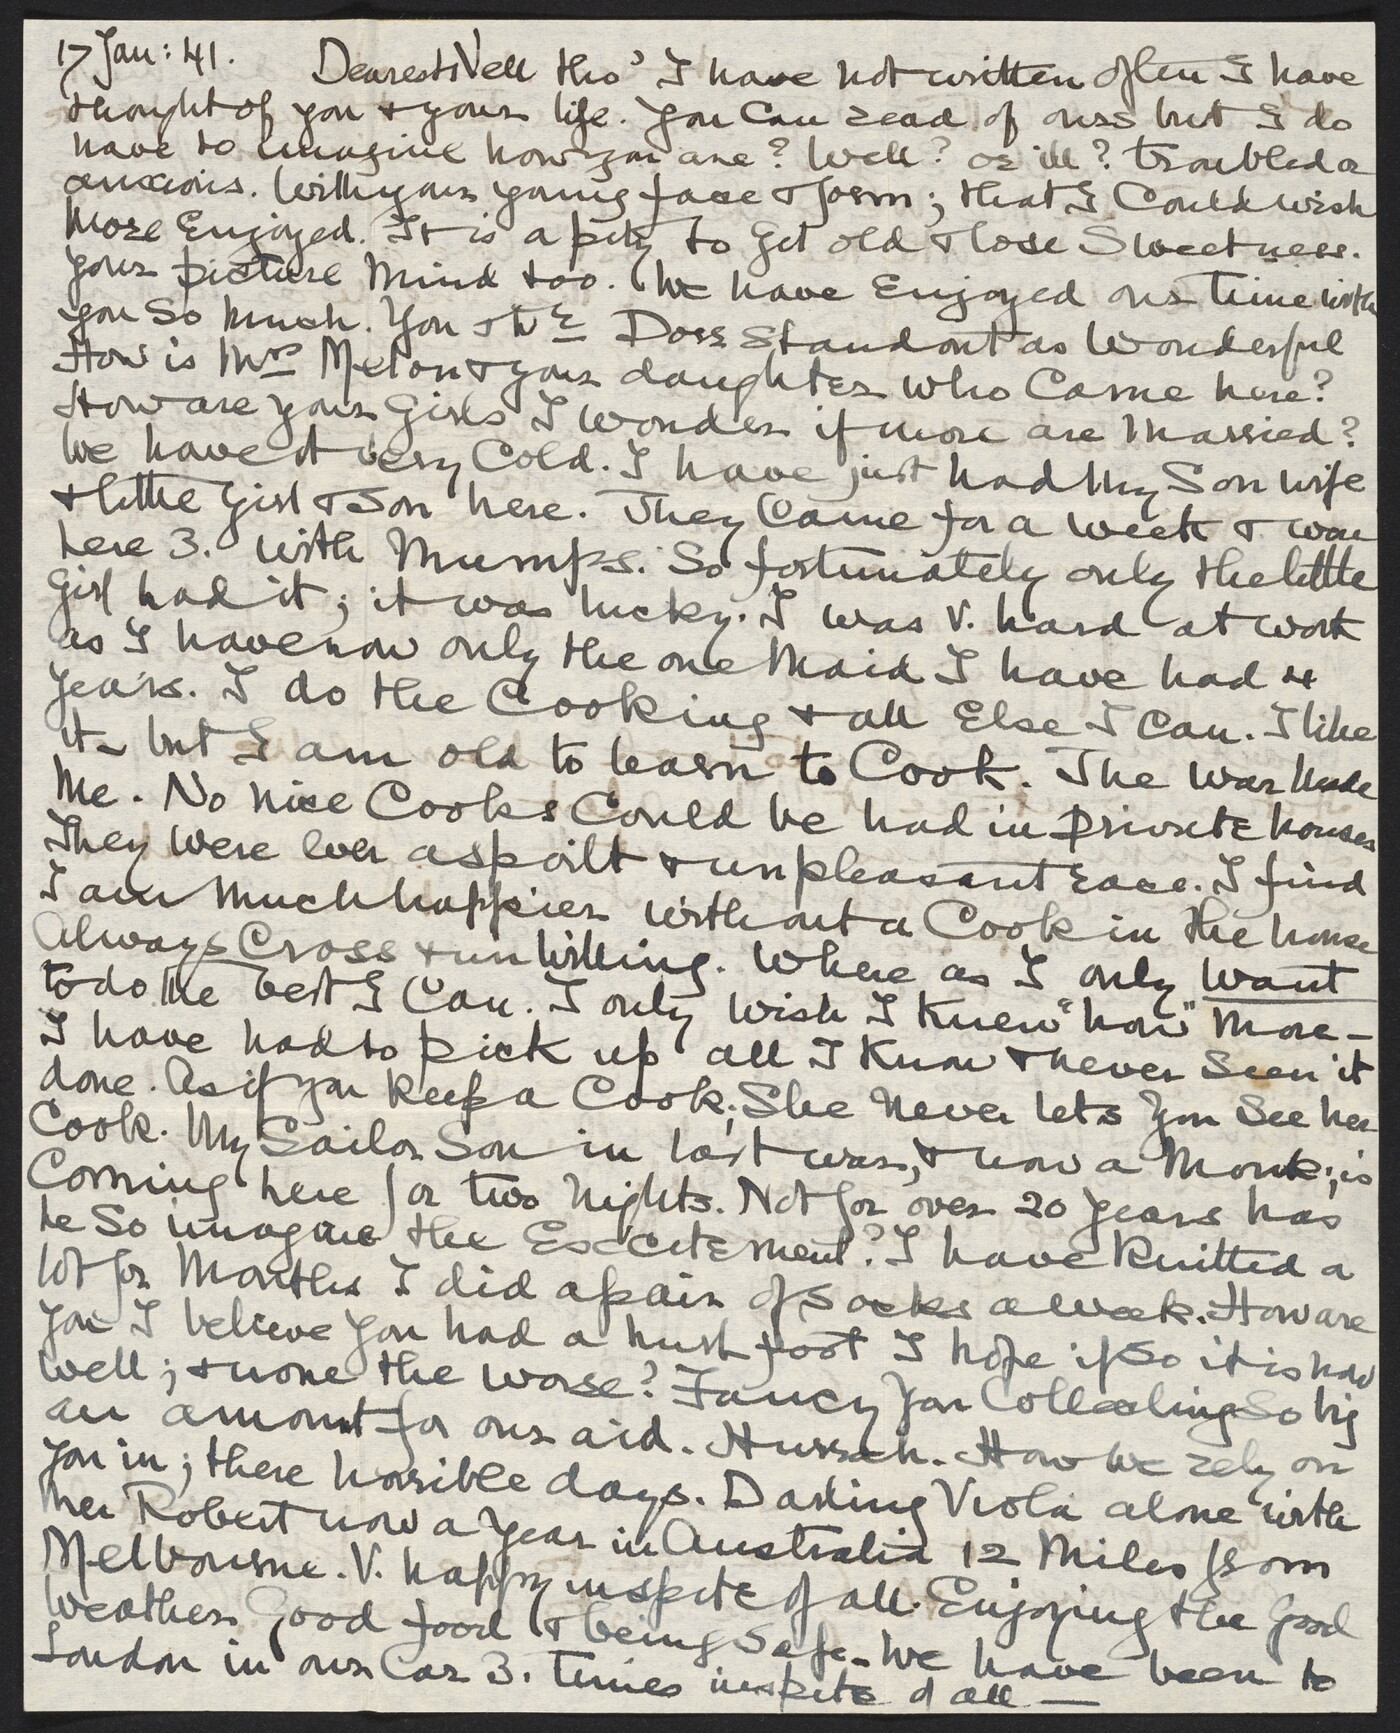 17 Jan: 41. Dearest Nell tho' I have not written often I have
thought of you & your life. You Can read of ours but I do
have to imagine how you are? Well? or ill? troubled or
anxious. With your young face & form; that I Could wish
More Enjoyed. It is a pity to get old & lose Sweetness.
your picture Mind too. We have Enjoyed our time with
you So Much. You & Mr Dorr Stand out as Wonderful
How is Mrs Melon & your daughter who Came here?
How are your Girls I wonder if more are Married?
We have it very Cold. I have just had My Son wife
& little Girl & Son here. They Came for a week & were
here 3. with Mumps. So fortunately only the little
Girl had it; it was lucky. I was V. hard at work
as I have now only the one Maid I have had 4
Years. I do the Cooking & all Else I Can. I like
it - but I am old to learn to Cook. The War Made
Me. No nice Cooks Could be had in private houses
They were ever a spoilt & unpleasant race. I find
I am Much happier without a Cook in the house
Always Cross & unWilling. Where as I only Want
to do the best I Can. I only wish I Knew "how" More -
I have had to pick up all I Know & never Seen it
done. As if you Keep a Cook; She Never lets You See her
Cook. My Sailor Son in last war, & now a Monk; is
Coming here for two Nights. Not for over 20 years has
he So imagine the Excitement? I have Knitted a
lot for Months I did a pair of Socks a Week. How are
You I believe you had a hurt foot I hope if So it is now
well; & none the worse? Fancy You Collecting So big
an amount for our aid. Hurrah. How we rely on
you in; these horrible days. Darling Viola alone with
her Robert now a Year in Australia 12 Miles from
Melbourne. V. happy inspite of all. Enjoying the good
Weather Good food & being Safe. We have been to
London in our Car 3. times inspite of all —